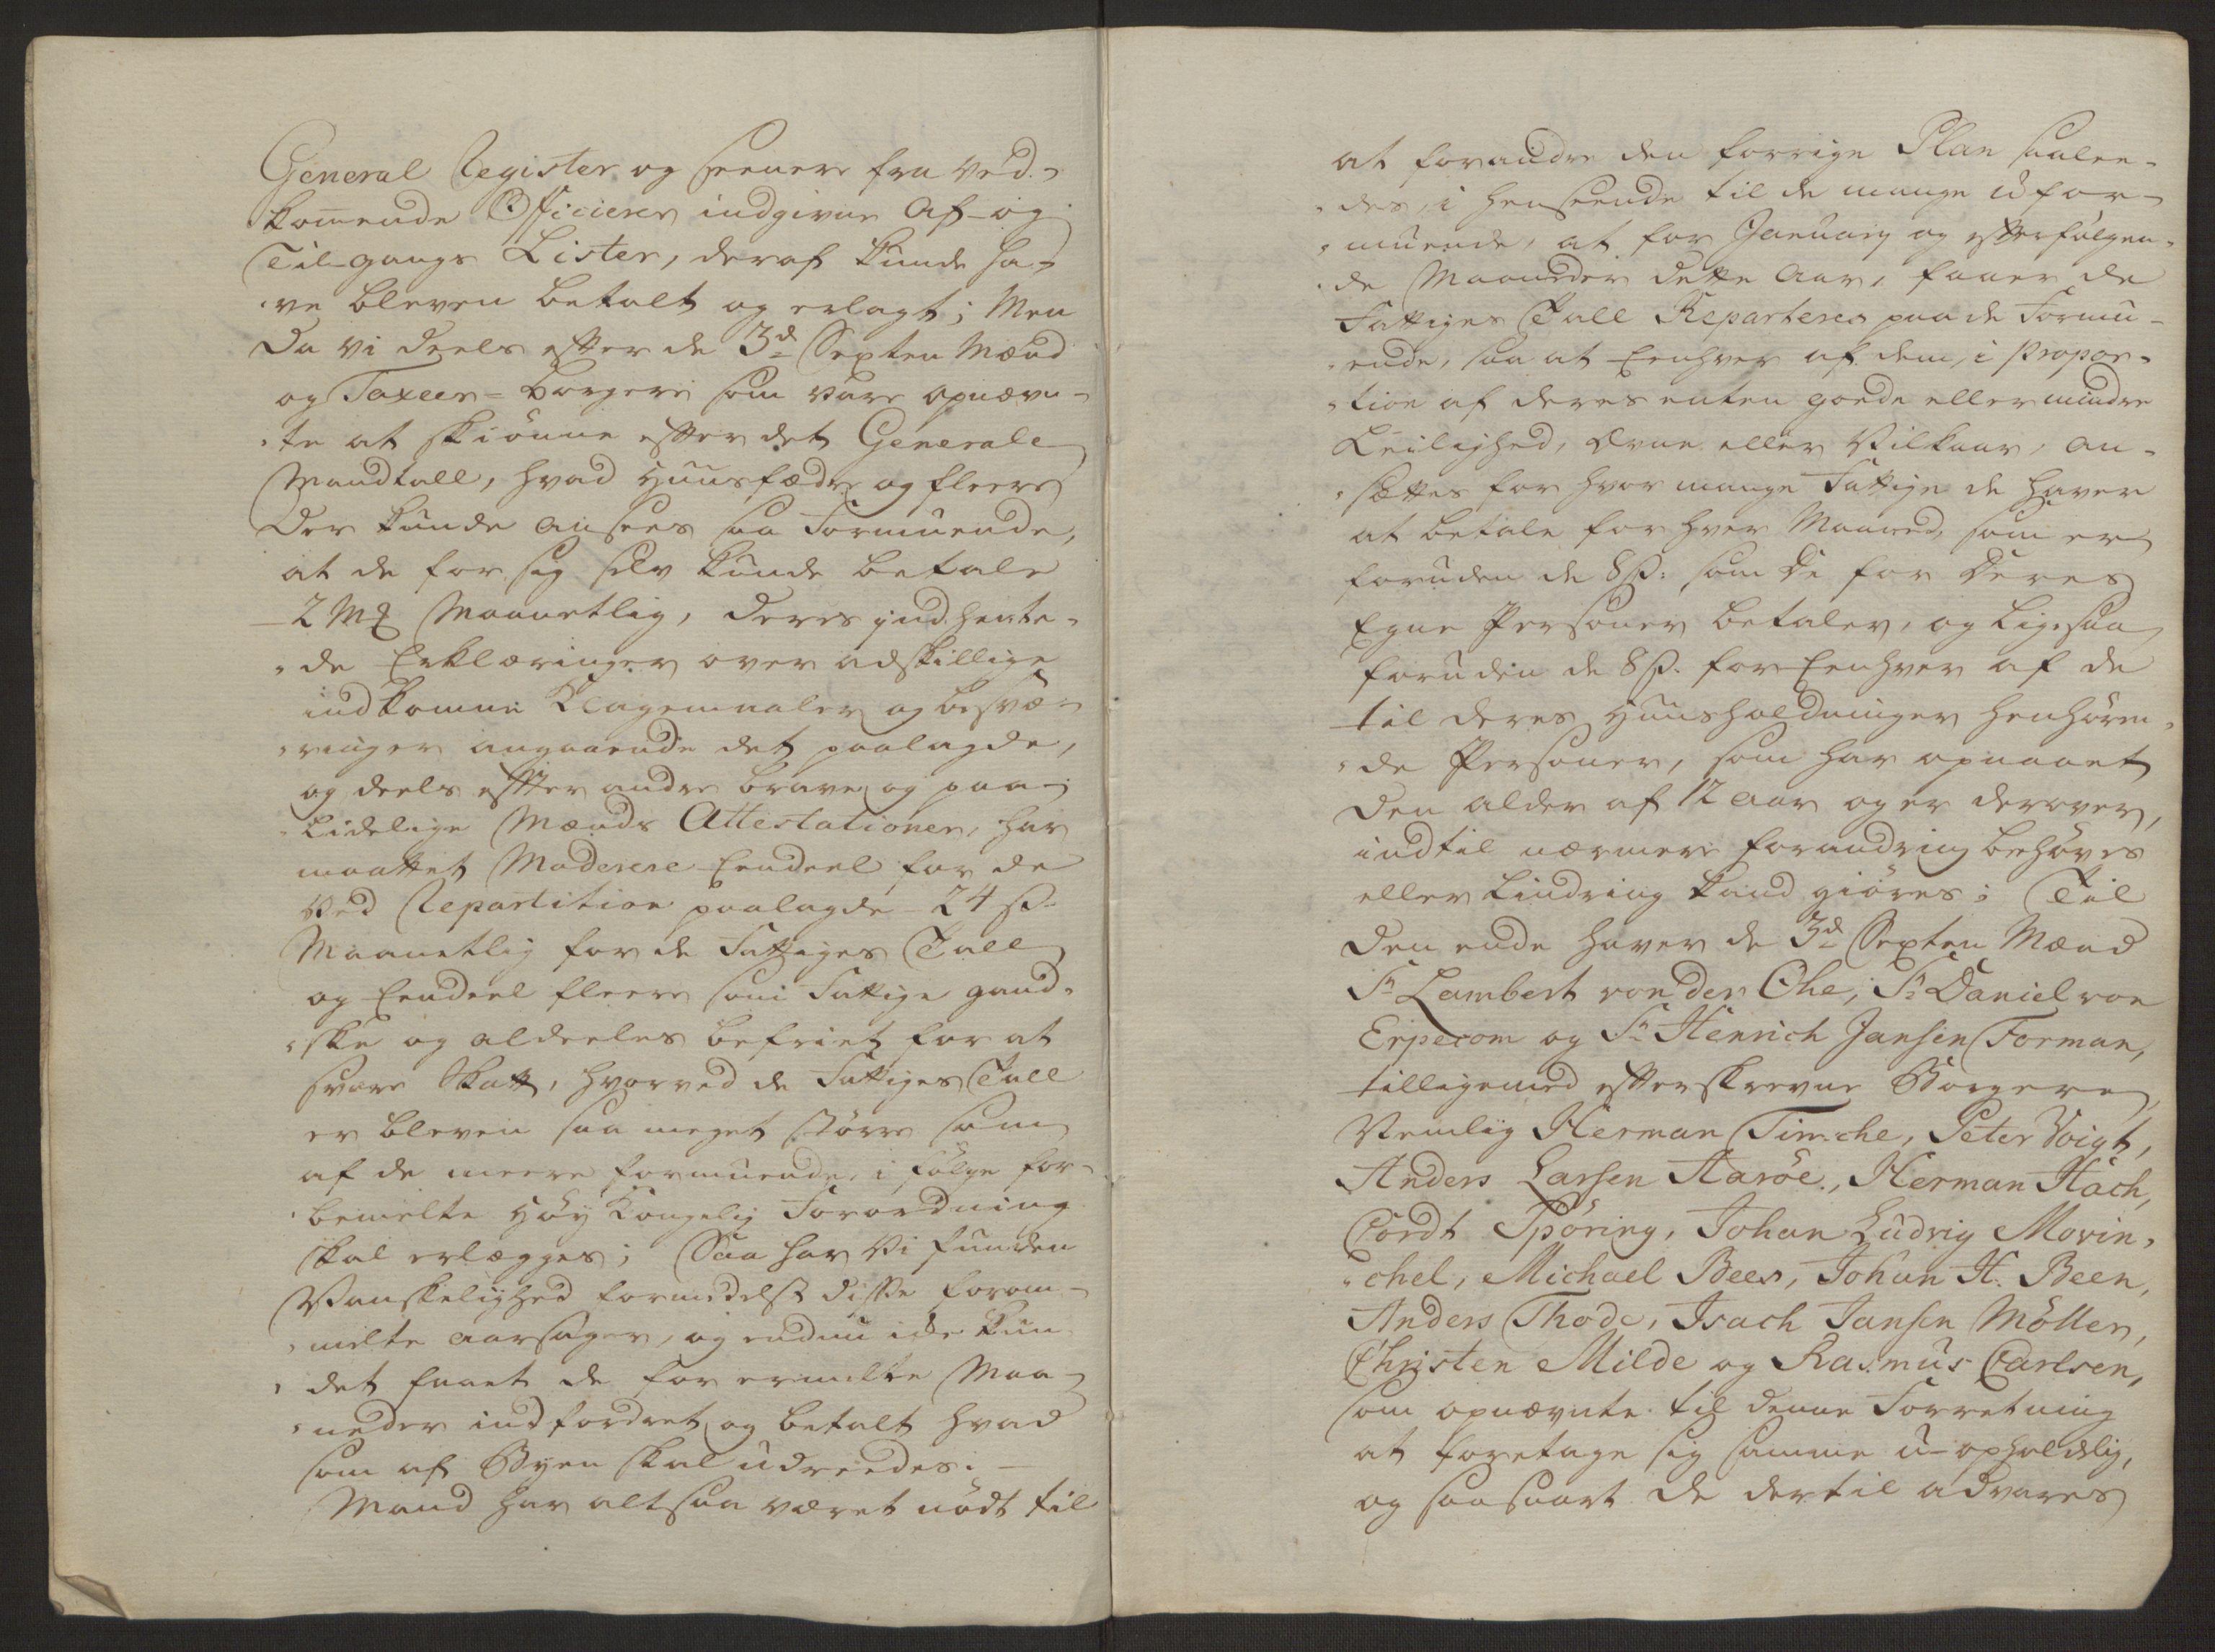 General Register og seenere fra ved-
kom̄ende Officierer indgivne Af- og
Til-gangs Lister, deraf kunde ha-
ve bleven betalt og erlagt; Men
Da vi deels efter de 3de Sexten Mænd
og Taxeer-Borgere som vare opnævn-
te at skiönne efter det Generale
Mandtall, hvad Huusfædre og fleere
Der kunde ansees saa Formuende,
at de for sig selv kunde betale
2 Mk Maanetlig, deres ind hente-
de Erklæringer over adskillige
indkomne Klagemaaler og besvæ-
ringer angaaende det paalagde,
og deels efter andre brave og paa-
lidelige Mænds Attestationer, har
maattet Moderere Eendeel for de
Ved Repartition paalagde 24 s.
Maanetlig for de Fattiges Tall
og Eendeel fleere som Fattige gand-
ske og aldeeles befriet for at
svare Skatt, hvorved de Fattiges Tall
er bleven saa meget större som
af de meere formuende, i fölge for-
bemelte Höy Kongelig Forordning
skal erlægges; Saa har Vi funden
Vanskelighed formedelst disse forom-
melte aarsager, og endnu icke kun-
det faaet de for ermelte Maa-
neder indfordret og betalt hvad
som af Byen skal udreedes.
Mand har altsaa været nödt til
at forandre den forrige Plan saalee-
des, i henseende til de mange ufor-
muende, at for January og efterfölgen-
de Maaneder dette Aar, faaer de
Fattiges Tall Reparteres paa de Formu-
ende, saa at Eenhver af dem, i Propor-
tion af deres enten goede eller mindre
Leilighed, Evne eller Vilkaar, an-
sættes for hvor mange Fattige de haver
at betale for hver Maaned, som er
foruden de 8 s. som De for Deres
Egne Personer betaler, og ligesaa
foruden de 8 s. for Eenhver af de
til deres Huusholdninger henhören-
de Personer, som har opnaaet
Den alder af 12 Aar og er derover,
indtil nærmere forandring behöves
eller lindring kand giöres; Til
Den ende haver de 3de Sexten Mænd
Sr. Lambert von der Ohe, Sr. Daniel von
Erpecom og Sr. Henrich Jansen Forman,
tilligemed efterskrevne Borgere
Nemlig Herman Timche, Peter Voigt,
Anders Larsen Aaröe, Herman Hach,
Cordt Spöring, Johan Ludvig Movin-
chel, Michael Beer, Johan H. Been,
Anders Thode, Isach Jansen Möller,
Christen Milde og Rasmus Carlsen,
som opnævnte til denne Forretning
at foretage sig samme u-opholdlig,
og saasnart de dertil advares